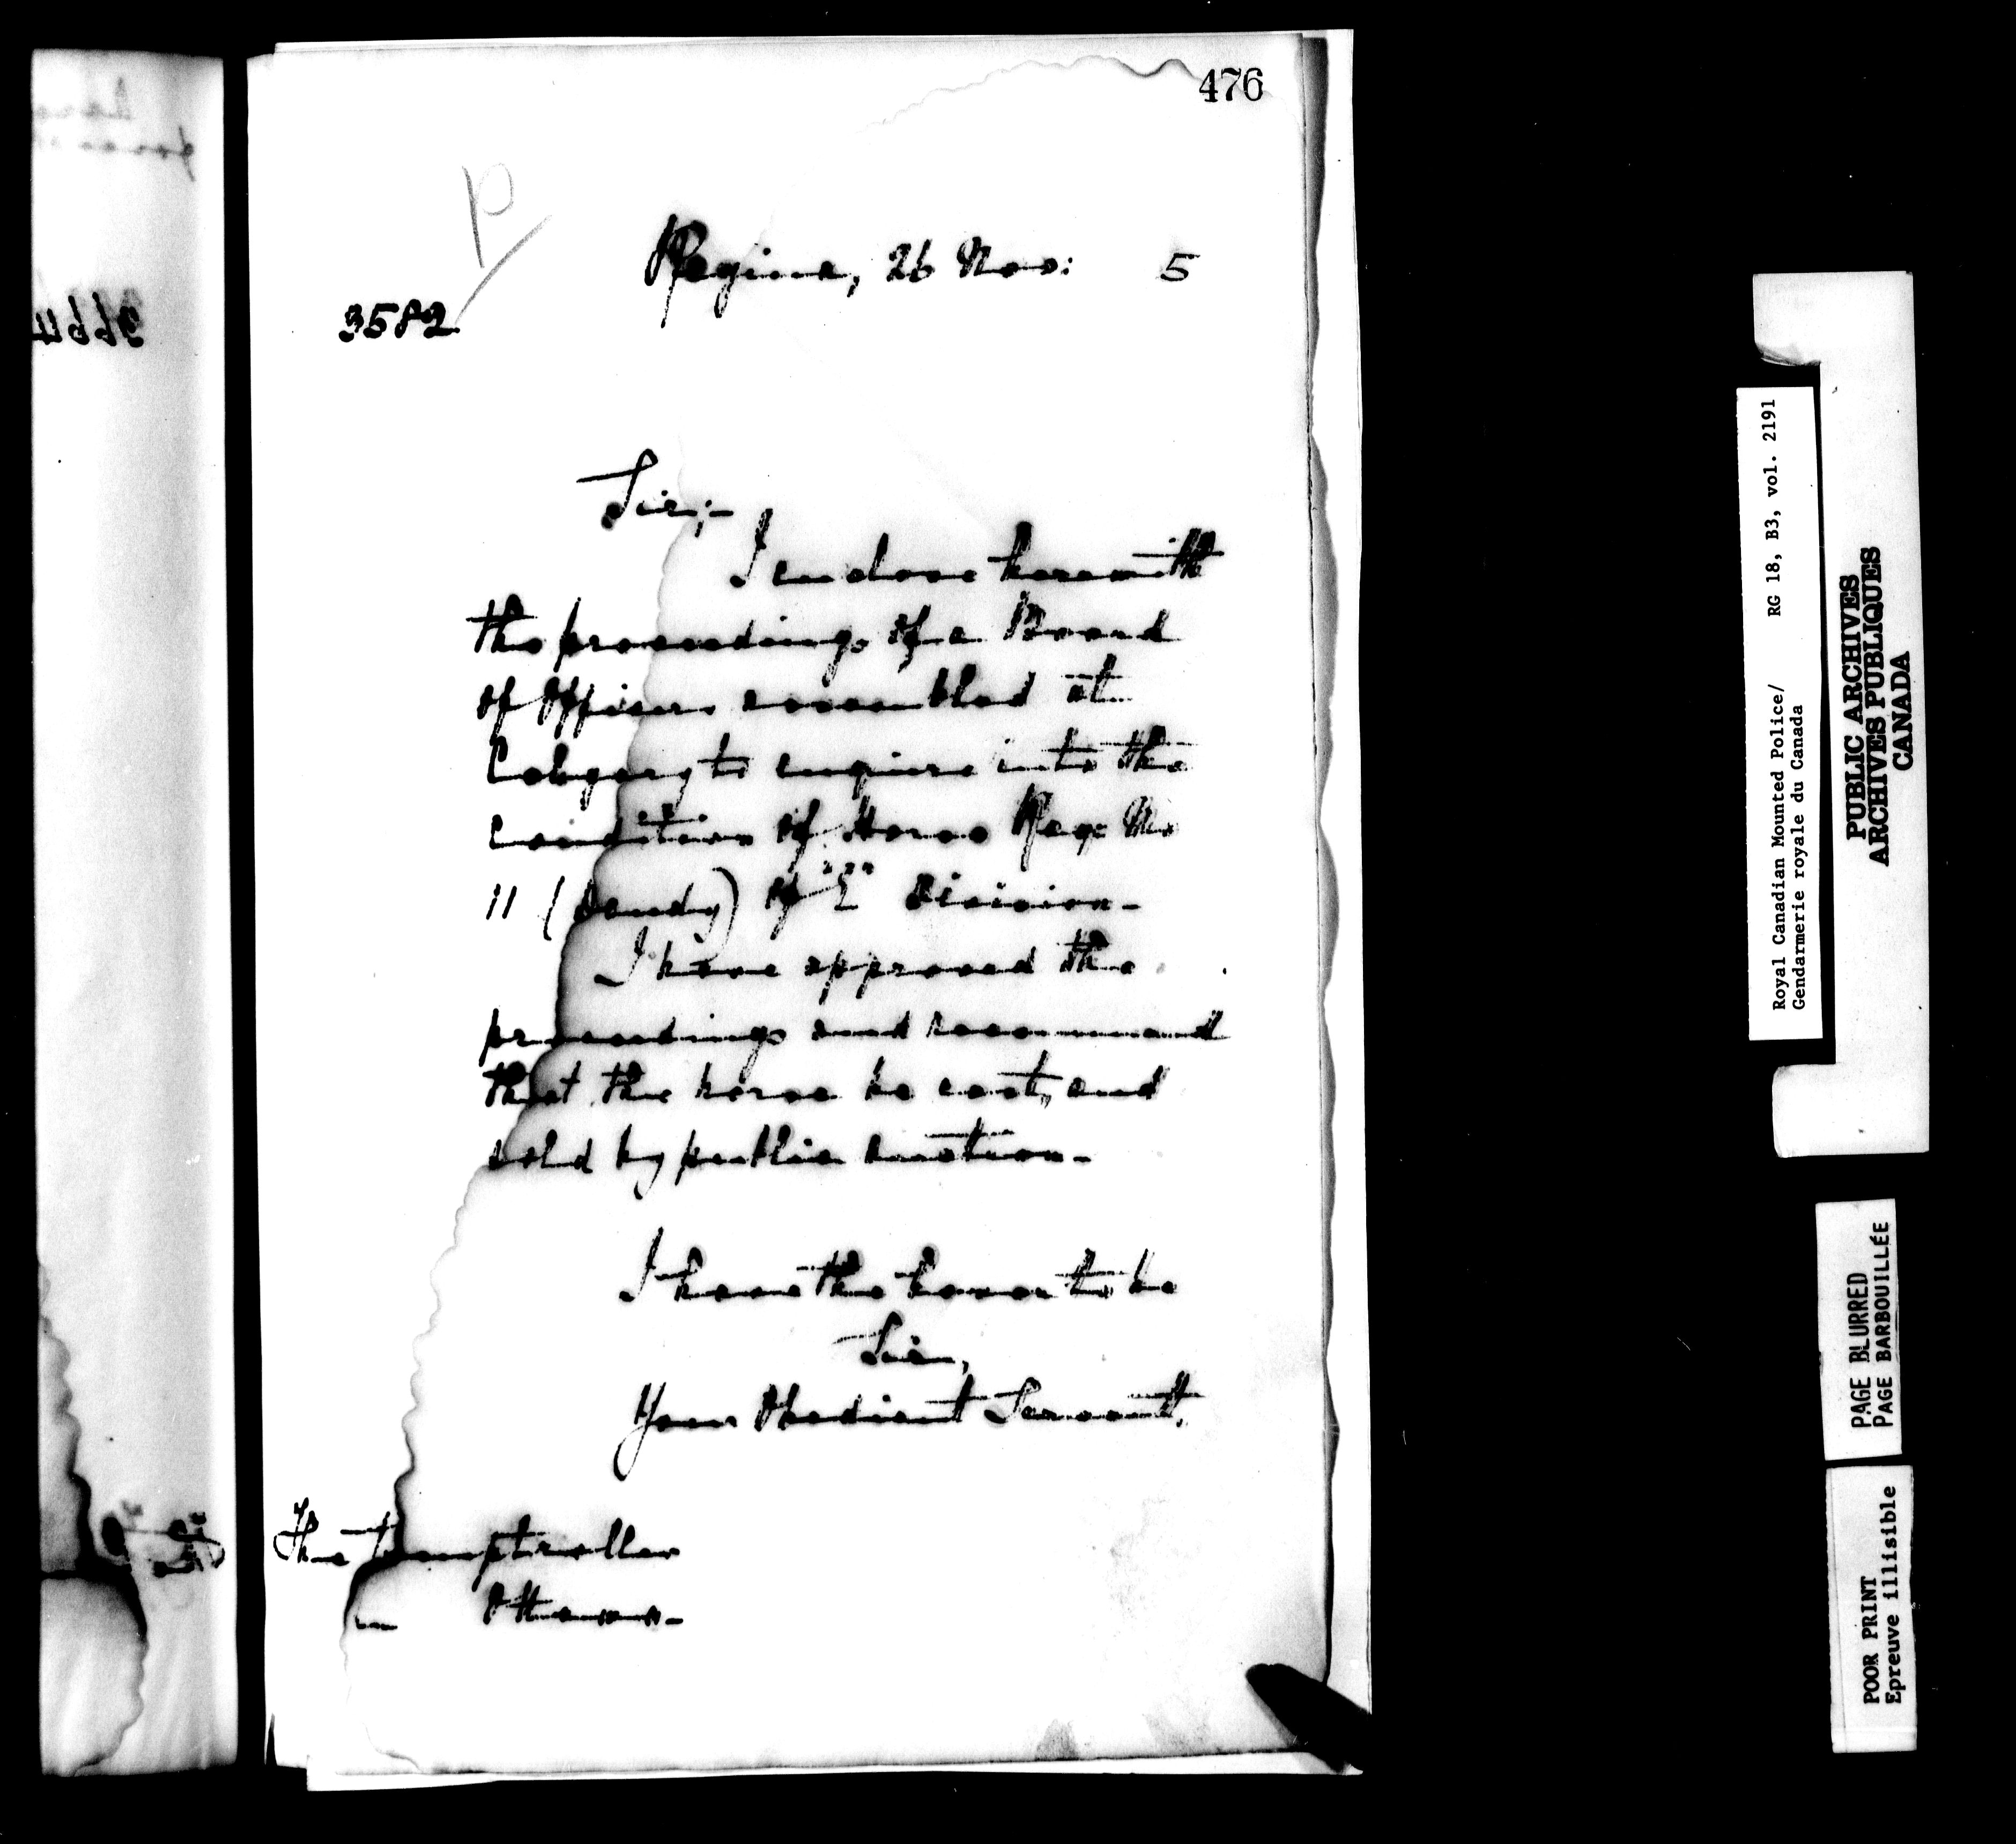 476
P
Regina, 26 Nov: 5
3582
Sir;-
I enclose herewith
the proceedings of a Board
of Officers assembled at
Calgary to enquire into the
Condition of Horse Reg: No
11 (Dandy) of "E" Division-
I have approved the
proceedings and recommend
that the horse be cast, and
sold by public auction-
I have the honor to be
Sir,
Your Obedient Servant,
The Comptroller
Ottawa-
Royal Canadian Mounted Police/ RG 18, B3, vol. 2191
Gendarmerie royale du Canada
PUBLIC ARCHIVES
ARCHIVES PUBLIQUES
CANADA
PAGE BLURRED
PAGE BARBOUILLÉE
POOR PRINT
Epreuve illisible